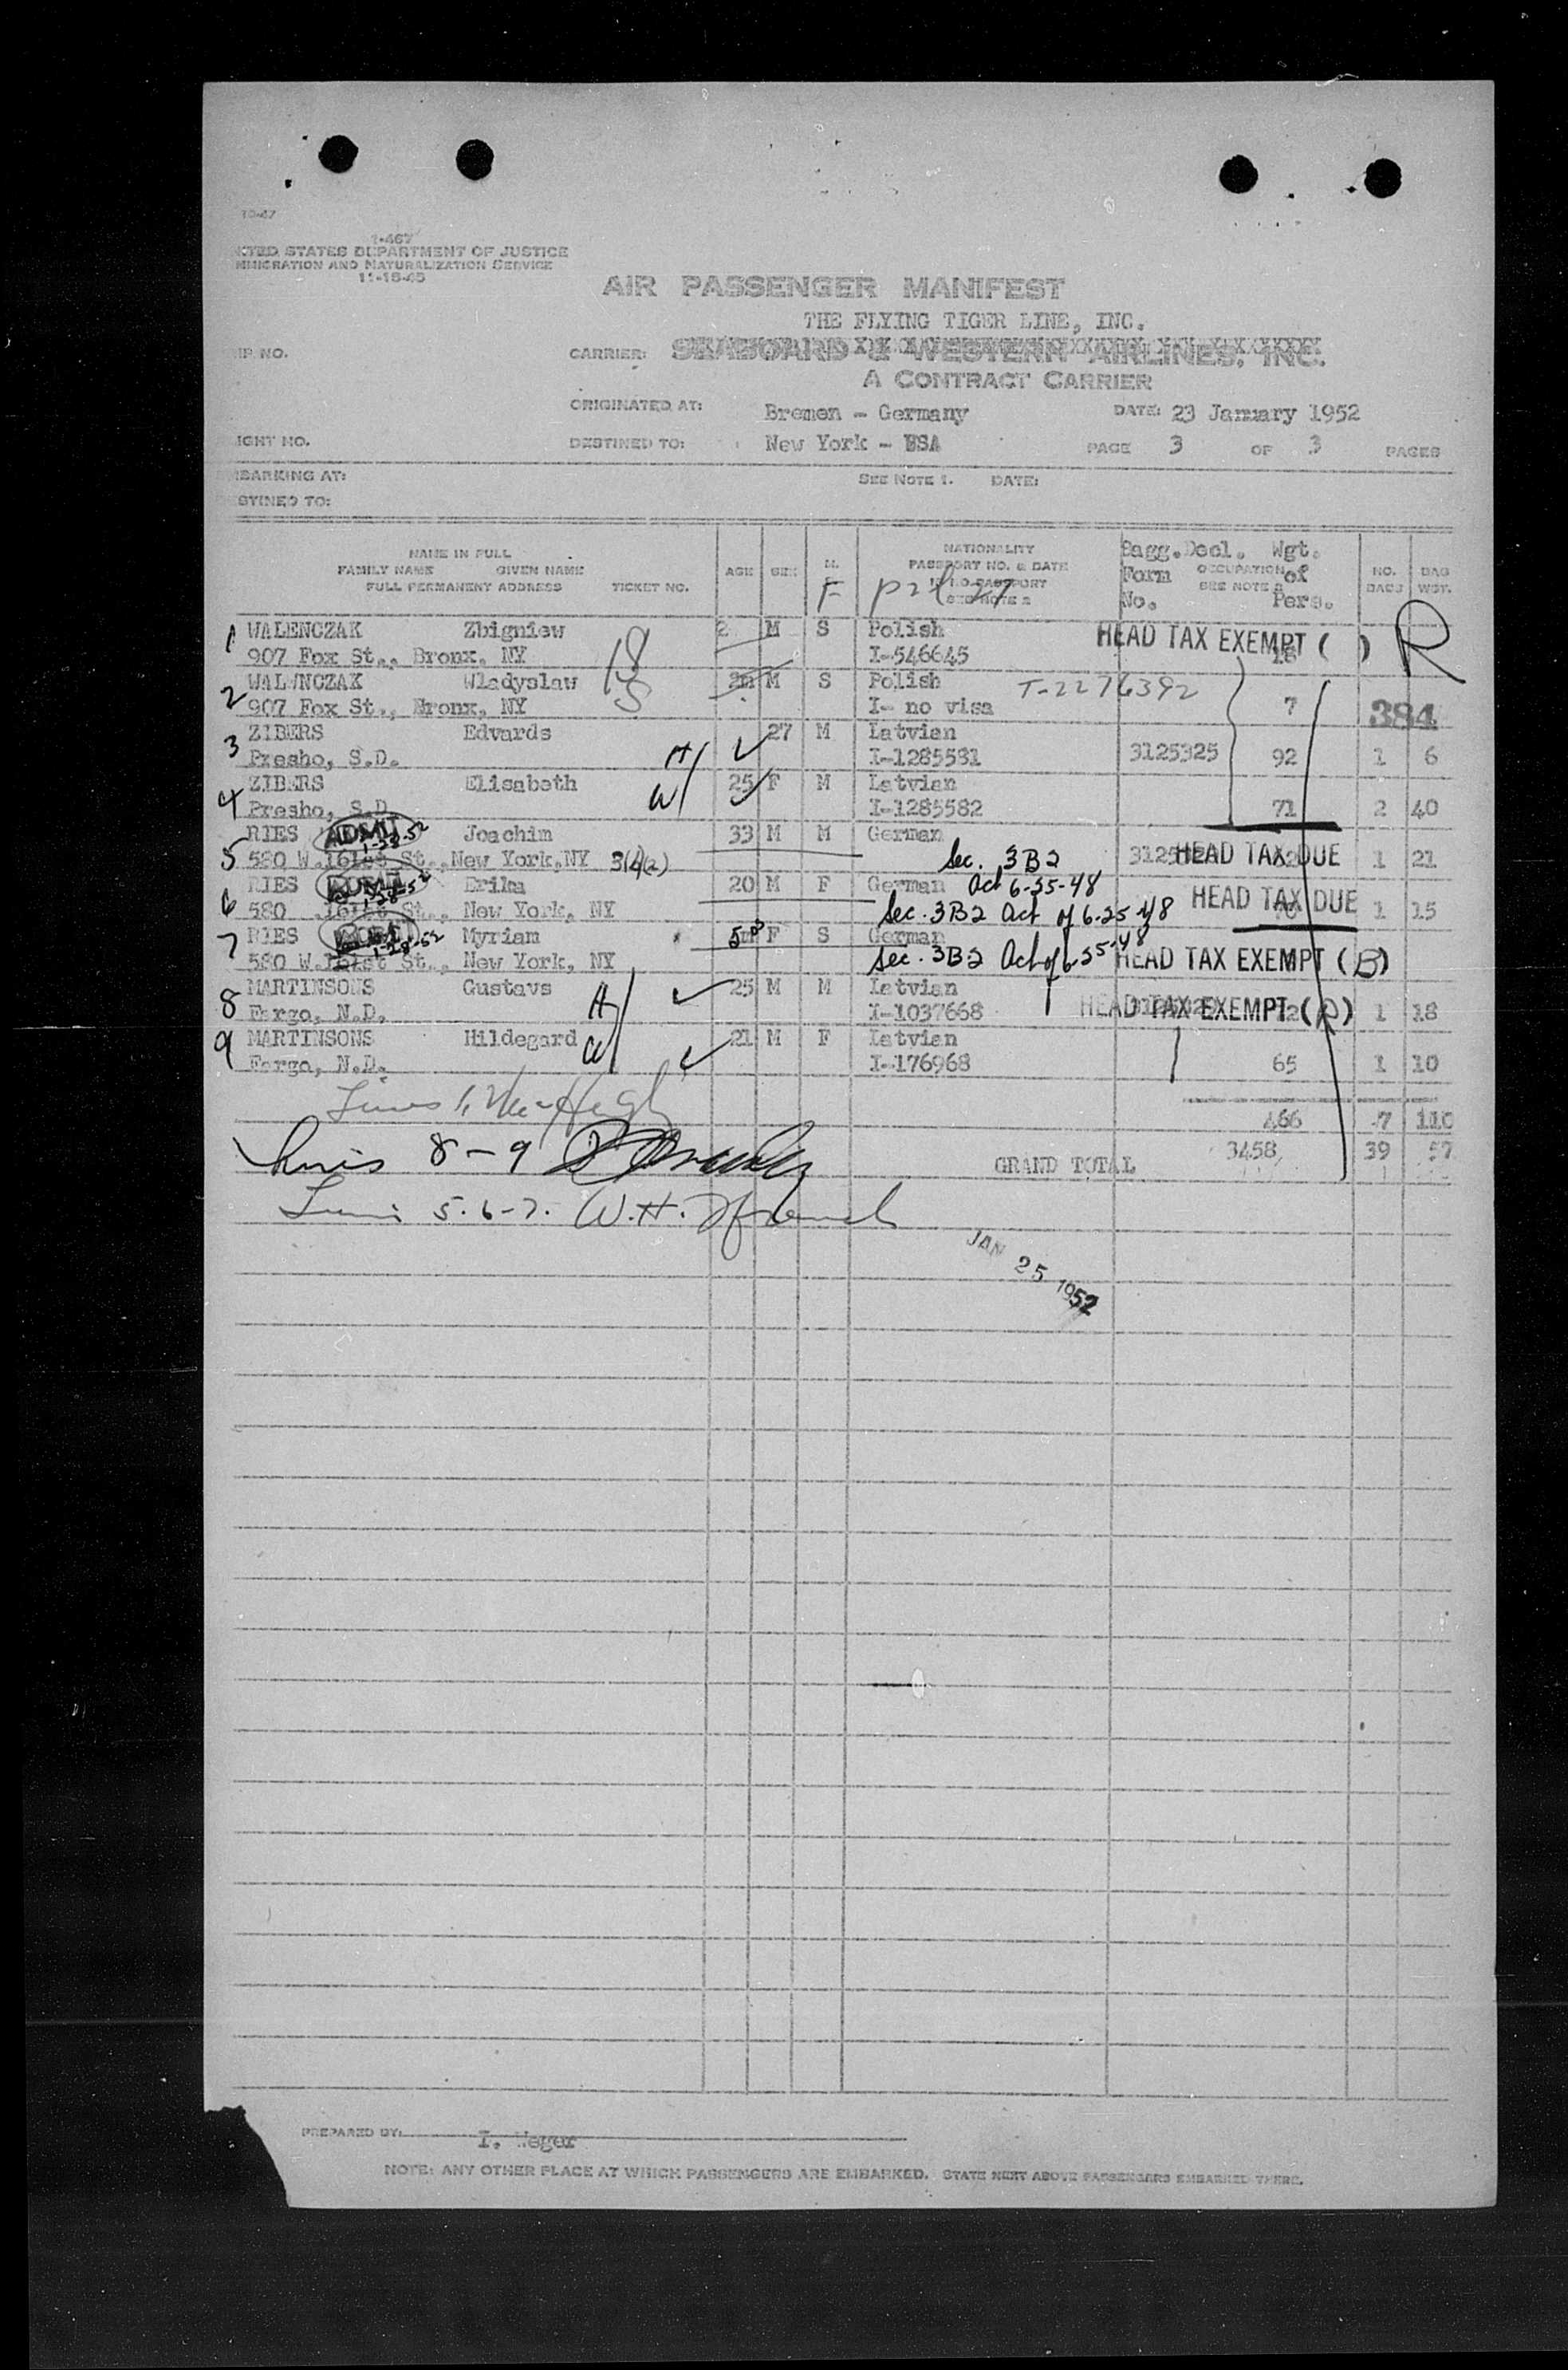 10-47
I-467
UNITED STATES DEPARTMENT OF JUSTICE
IMMIGRATION AND NATURALIZATION SERVICE
11-15-45
AIR PASSENGER MANIFEST
THE FLYING TIGER LINE, INC.
IP NO.
CARRIER: SEABOARD & WESTERN AIRLINES, INC.
A CONTRACT CARRIER
ORIGINATED AT: Bremen - Germany DATE: 23 January 1952
IGHT NO. DESTINED TO: New York - USA PAGE 3 OF 3 PAGES
MBARKING AT: SEE NOTE 1. DATE:
STINED TO:
NAME IN FULL
FAMILY NAME GIVEN NAME
FULL PERMANENT ADDRESS TICKET NO.
AGE SEX M. F
NATIONALITY
PASSPORT NO. & DATE
IF NO PASSPORT
SEE NOTE 2
Bagg.Decl. Wgt.
Form OCCUPATION of
No. SEE NOTE 2 Pers.
NO. BAGS BAG WGT.
1 WALENCZAK Zbigniew 2 M S Polish HEAD TAX EXEMPT ( ) R
907 Fox St., Bronx, NY 18 I-546645
2 WALWNCZAK Wladyslaw 2m M S Polish T-2276392
907 Fox St., Bronx, NY S I- no visa 7 384
3 ZIBERS Edvards 27 M Latvian
Presho, S.D. H I-1285581 3125325 92 1 6
4 ZIBERS Elisabeth 25 F M Latvian
Presho, S.D. W I-1285582 71 2 40
5 RIES ADMIT 1-28-52 Joachim 33 M M German
580 W.161st St., New York,NY 3(2)(a) Sec. 3B2 HEAD TAX DUE 1 21
6 RIES 1-28-52 Erika 20 M F German Act 6-25-48
580 .161st St., New York, NY Sec. 3B2 Act of 6-25-48 HEAD TAX DUE 1 15
7 RIES 1-28-52 Myriam 5m F S German
580 W.161st St., New York, NY Sec. 3B2 Act of 6-25-48 HEAD TAX EXEMPT (B)
8 MARTINSONS Gustavs H 25 M M Latvian
Fargo, N.D. I-1037668 HEAD TAX EXEMPT (R) 1 18
9 MARTINSONS Hildegard W 21 M F Latvian
Fargo, N.D. I-176968 65 1 10
466 7 110
8-9
GRAND TOTAL 3458 39 57
5-6-7. W.H.
JAN 25 1952
PREPARED BY: I. Heger
NOTE: ANY OTHER PLACE AT WHICH PASSENGERS ARE EMBARKED. STATE NEXT ABOVE PASSENGERS EMBARKED THERE.